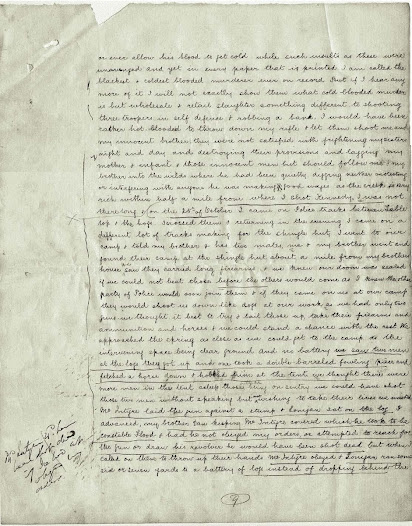 or ever allow his blood to get cold while such insults as these were
unavenged and yet in every paper that is printed I am called the
blackest & coldest blooded murderer ever on record But if I hear any
more of it I will not exactly show them what cold blooded murder
is but wholesale & retail slaughter something different to shooting
three troopers in self defence & robbing a bank. I would have been
rather hot blooded to throw down my rifle & let them shoot me and
my innocent brother, they were not satisfied with frightening my sisters
night and day and destroying their provisions and lagging my
mother & infant & those innocent men but should follow me & my
brother into the wilds where he had been quietly digging neither molesting
or interfering with anyone he was making good wages as the creek is very
rich within half a mile from where I shot Kennedy. I was not
there long & on the 25th of October I came on Police tracks between Table
top & the bogs. I crossed them & returning in the evening I came on a
different lot of tracks making for the shingle hut I went to our
camp & told my brother & his two mates. me & my brother went and
found their camp at the shingle hut about a mile from my brothers
house. saw they carried long firearms & we knew our doom was sealed
if we could not beat those before the others would come as I knew the other
party of Police would soon join them & if they came on us at our camp
they would shoot us down like dogs at our work as we had only two
guns we thought it best to try & bail those up, take their firearms and
ammunition and horses & we could stand a chance with the rest We
approached the spring as close as we could get to the camp as the
intervening space being clear ground and no battery we saw two men
at the logs they got up and one took a double barreled fowling piece and
fetched a horse down & hobbled him at the tent we thought there were
more men in the tent asleep those being on sentry we could have shot
those two men without speaking but not wishing to take their lives we waited
McIntyre laid the gun against a stump & Lonigan sat on the log I
advanced, my brother Dan keeping McIntyre covered which he took to be
constable Flood & had he not obeyed my orders or attempted to reach for
the gun or draw his revolver he would have been shot dead but when I
called on them to throw up their hands McIntyre obeyed & Lonigan ran some
six or seven yards to a battery of logs instead of dropping behind the